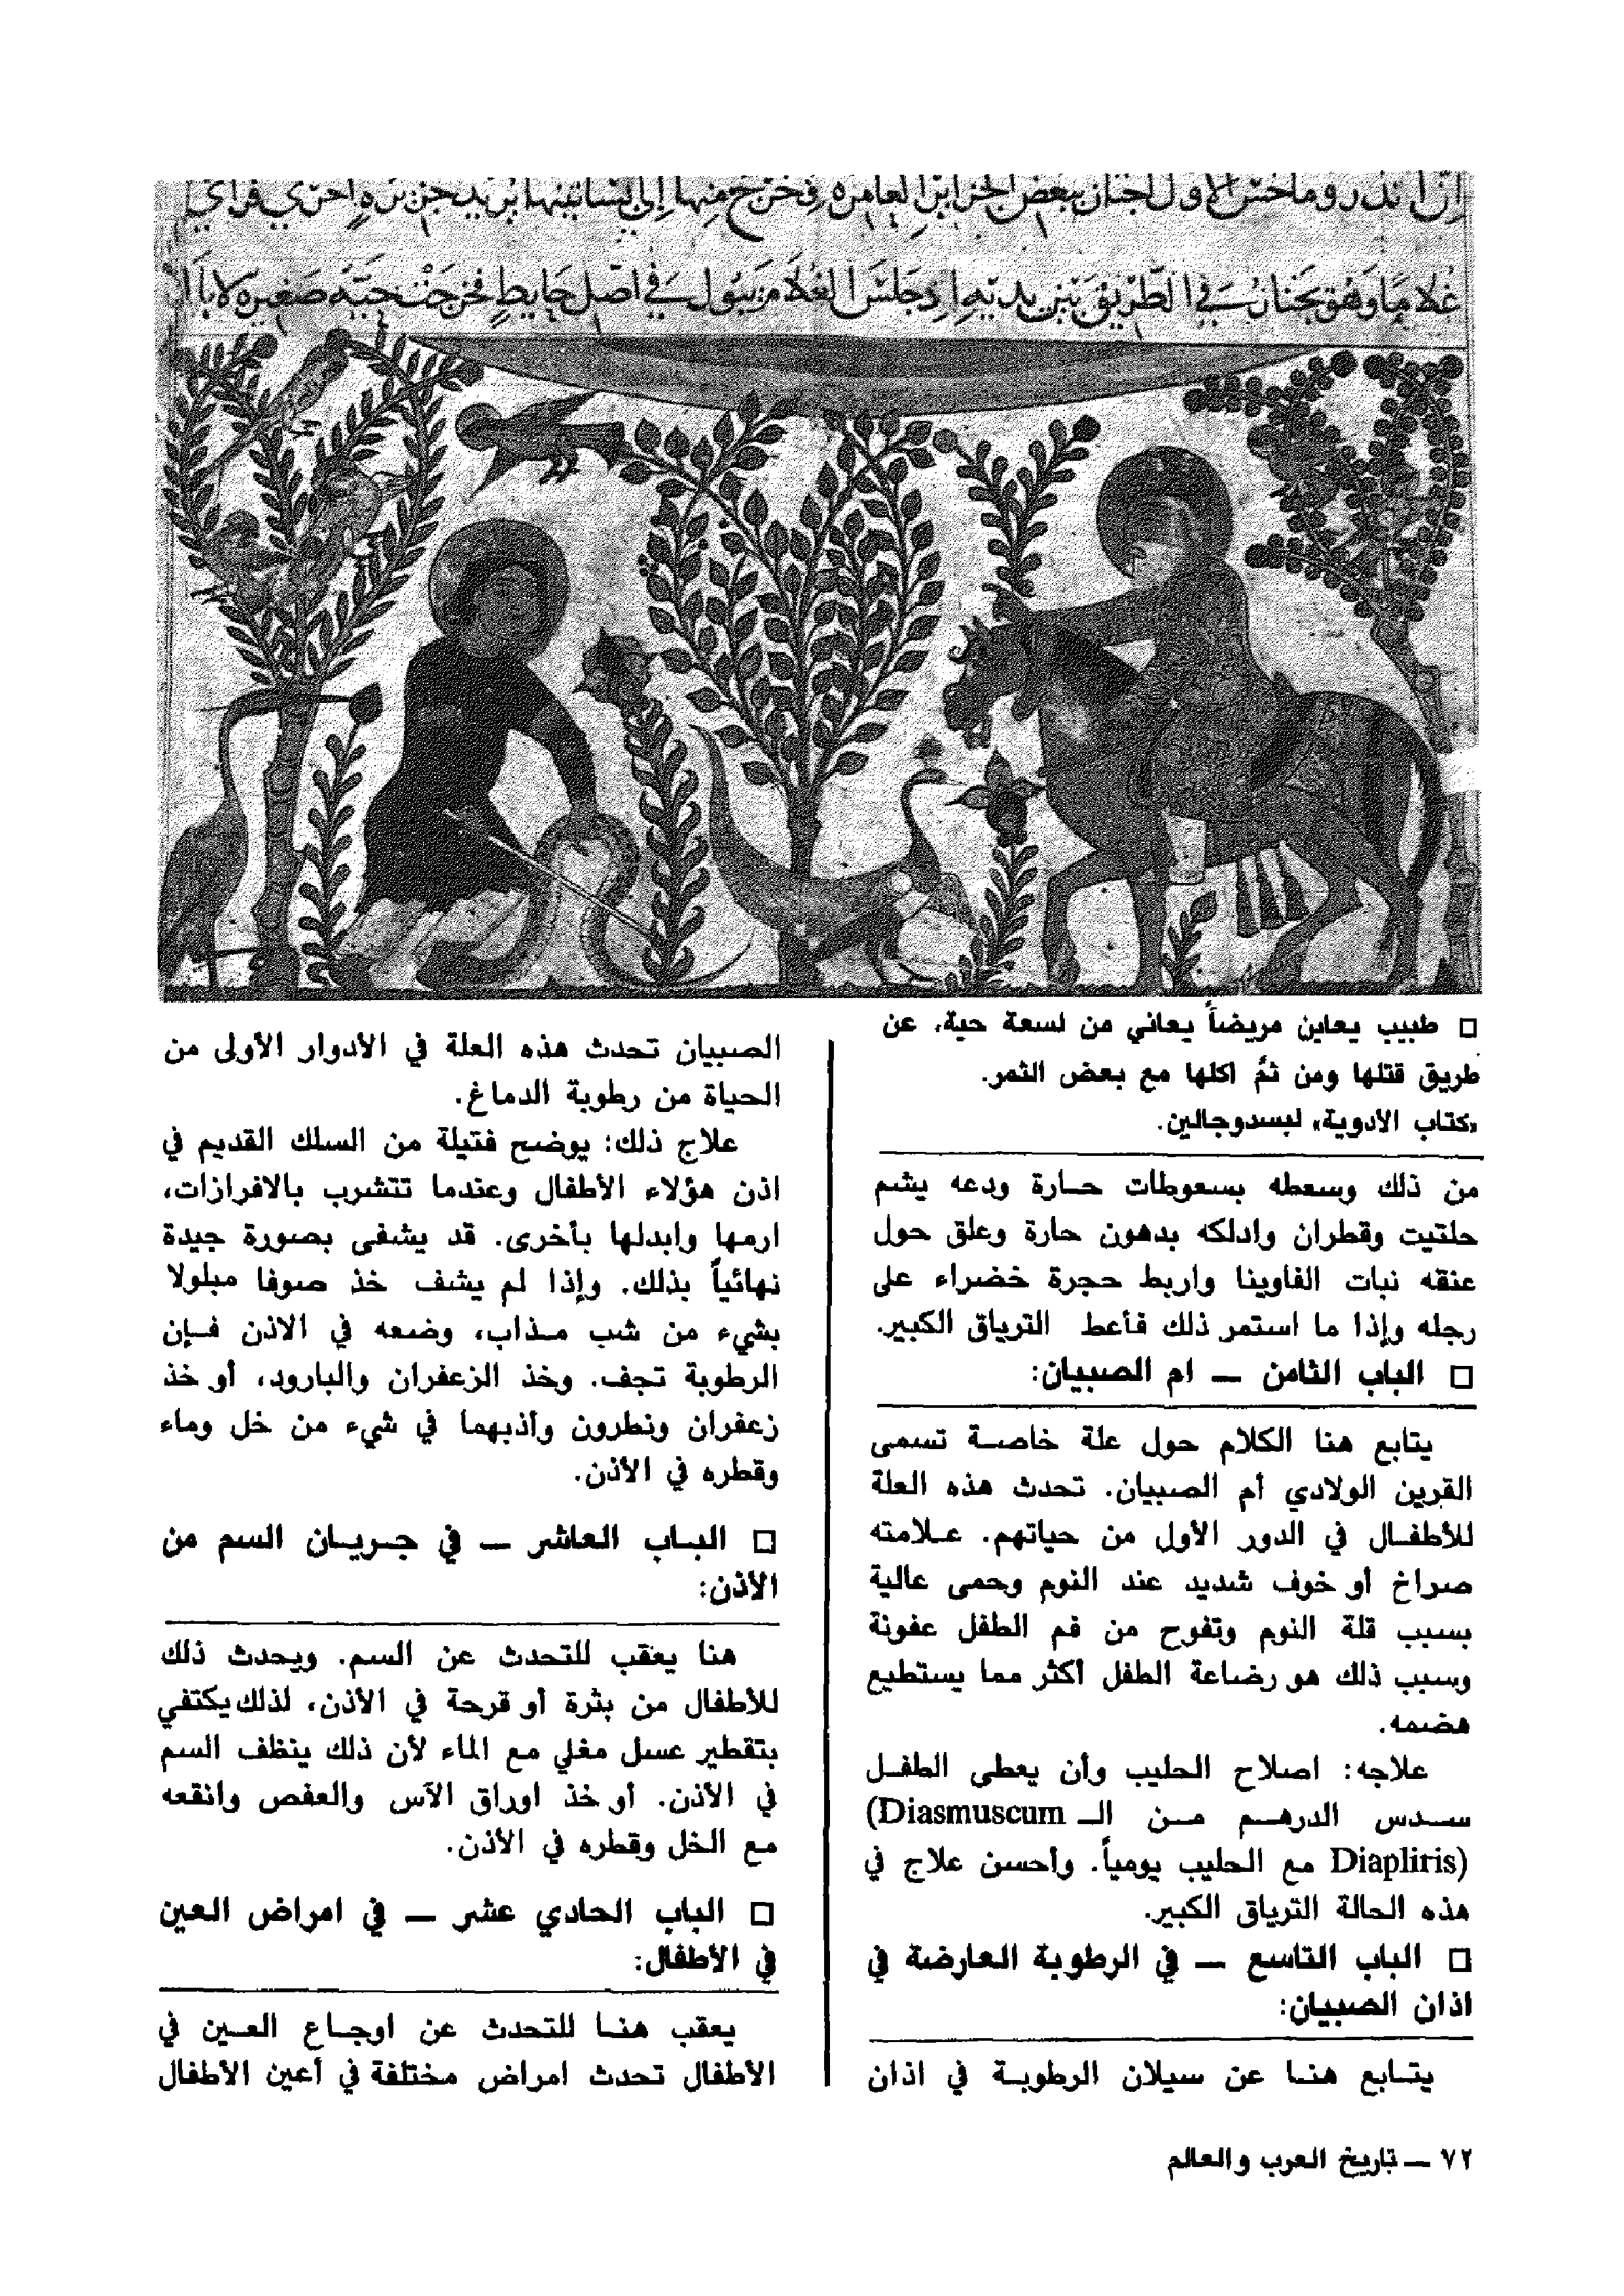 إن أندروماخس الاول اجتاز ببعض الجزائر العامرة فخرج منها إلى بساتينها يريد جزيرة اخرى فراى
غلاما وهو بجنازة في الطريق بين يديه إذ جلس الغلام يبول في اصل حايط فخرجت حية صغيرة
□ طبيب يعاين مريضاً يعاني من لسعة حية، عن
طريق قتلها ومن ثمُ اكلها مع بعض الثمر.
«كتاب الادوية» لبسدوجالين.
من ذلك وسعطه بسعوطات حارة ودعه يشم
حلتيت وقطران وادلكه بدهون حارة وعلق حول
عنقه نبات الفاوينا واربط حجرة خضراء على
رجله وإذا ما استمر ذلك فأعط الترياق الكبير.
□ الباب الثامن — ام الصبيان:
يتابع هنا الكلام حول علة خاصة تسمى
القرين الولادي أم الصبيان. تحدث هذه العلة
للأطفال في الدور الأول من حياتهم. علامته
صراخ أو خوف شديد عند النوم وحمى عالية
بسبب قلة النوم وتفوح من فم الطفل عفونة
وسبب ذلك هو رضاعة الطفل أكثر مما يستطيع
هضمه.
علاجه: اصلاح الحليب وأن يعطى الطفل
سدس الدرهم من الـ Diasmuscum)
(Diapliris مع الحليب يومياً. وأحسن علاج في
هذه الحالة الترياق الكبير.
□ الباب التاسع — في الرطوبة العارضة في
اذان الصبيان:
يتابع هنا عن سيلان الرطوبة في اذان
الصبيان تحدث هذه العلة في الأدوار الأولى من
الحياة من رطوبة الدماغ.
علاج ذلك: يوضح فتيلة من السلك القديم في
اذن هؤلاء الأطفال وعندما تتشرب بالافرازات،
ارمها وابدلها بأخرى. قد يشفى بصورة جيدة
نهائياً بذلك. وإذا لم يشف خذ صوفا مبلولا
بشيء من شب مذاب، وضعه في الاذن فإن
الرطوبة تجف. وخذ الزعفران والبارود، أو خذ
زعفران ونطرون وأذبهما في شيء من خل وماء
وقطره في الأذن.
□ الباب العاشر — في جريان السم من
الأذن:
هنا يعقب للتحدث عن السم. ويحدث ذلك
للأطفال من بثرة أو قرحة في الأذن، لذلك يكتفي
بتقطير عسل مغلي مع الماء لأن ذلك ينظف السم
في الأذن. أو خذ اوراق الآس والعفص وانقعه
مع الخل وقطره في الأذن.
□ الباب الحادي عشر — في امراض العين
في الأطفال:
يعقب هنا للتحدث عن اوجاع العين في
الأطفال تحدث امراض مختلفة في أعين الأطفال
٧٢ — تاريخ العرب والعالم